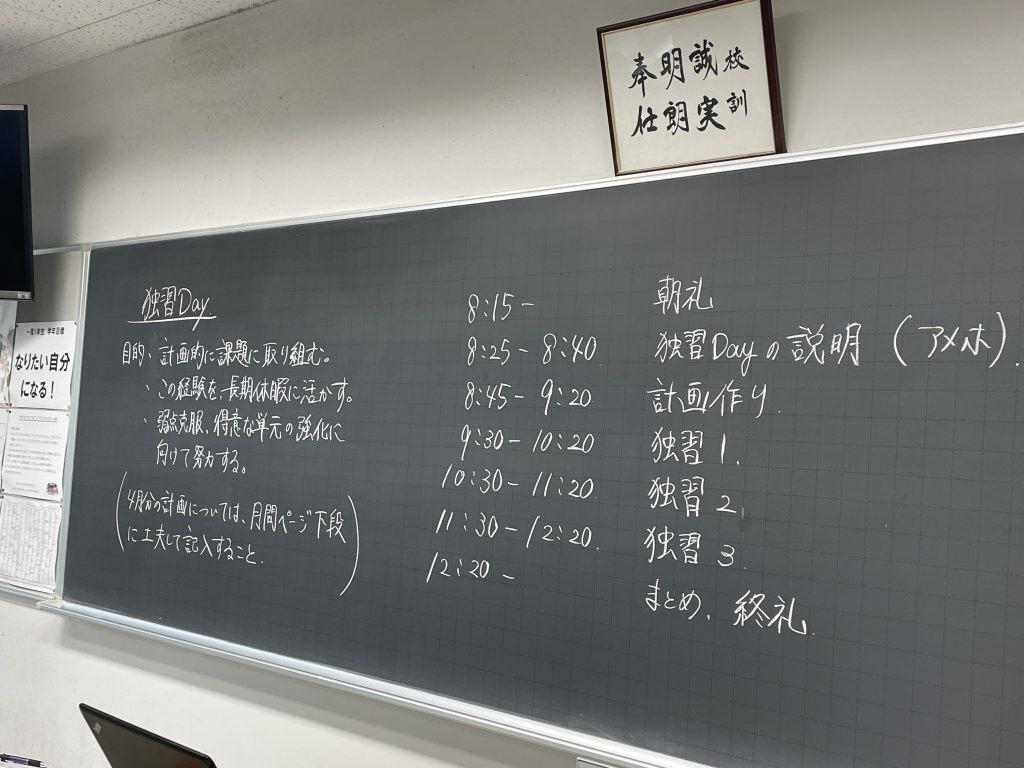 校訓
誠実
明朗
奉仕
一貫1年生 学年目標
なりたい自分
になる！
独習Day
目的・計画的に課題に取り組む。
・この経験を、長期休暇に活かす。
・弱点克服、得意な単元の強化に
向けて努力する。
(4月分の計画については、月間ページ下段
に工夫して記入すること.)
8:15- 朝礼
8:25-8:40 独習Dayの説明 (アメホ).
8:45-9:20 計画作り.
9:30-10:20 独習1.
10:30-11:20 独習2.
11:30-12:20. 独習3.
12:20- まとめ. 終礼.